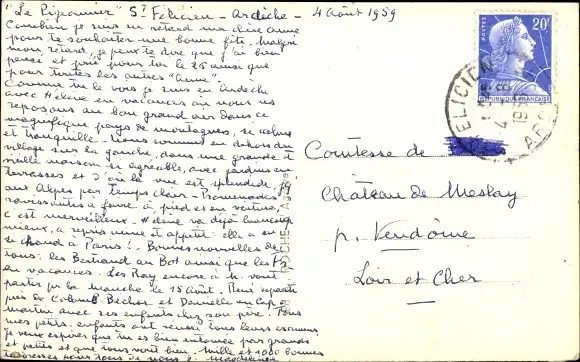 "Le Pigeonnier" St Félicien - Ardèche - 4 Août 1959
Combien je suis en retard ma chère Anne
pour te souhaiter une bonne fête. Malgré
mon retard, je peux te dire que j'ai bien
pensé et prié pour toi le 26 ainsi que
pour toutes les autres "Anne".
Comme tu le vois je suis en Ardèche
avec Hélène en vacances où nous ns
reposons au bon grand air dans ce
magnifique pays de montagnes, si calme
et tranquille. Nous sommes en dehors du
village sur la gauche, dans une grande
vieille maison si agréable, avec jardins en
terrasses et d'où la vue est splendide
aux Alpes par temps clair. Promenades
ravissantes à faire à pied et en voiture,
c'est merveilleux. Hélène va déjà beaucoup
mieux, a repris mine et appétit: elle a eu
si chaud à Paris! Bonnes nouvelles de
tous: les Bertrand au Bot ainsi que les
en vacances. Les Roy encore à
partis pr la Manche le 15 Août. René reparti
près de Colomb Béchar et Danielle au Cap
Matiou avec ses enfants chez son père. Tous
mes petits enfants ont réussi tous leurs examens.
Je veux espérer que tu es bien entourée par grands
et petits et que tous vont bien. Mille et 1000 bonnes
tendresses pour tous de nous 2.
POSTES
20F
REPUBLIQUE FRANÇAISE
FELICIEN
4 - 8
ARD
Comtesse de
Château de Meslay
p. Vendôme
Loir et Cher